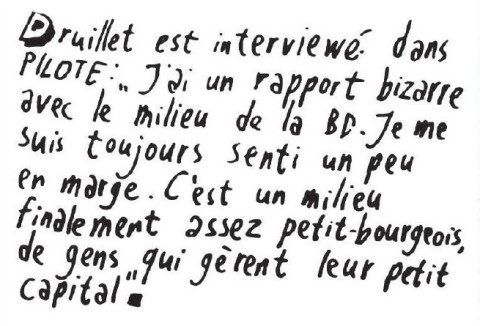 Druillet est interviewé dans
PILOTE: „ J'ai un rapport bizarre
avec le milieu de la BD. Je me
suis toujours senti un peu
en marge. C'est un milieu
finalement assez petit-bourgeois,
de gens qui gèrent leur petit
capital".